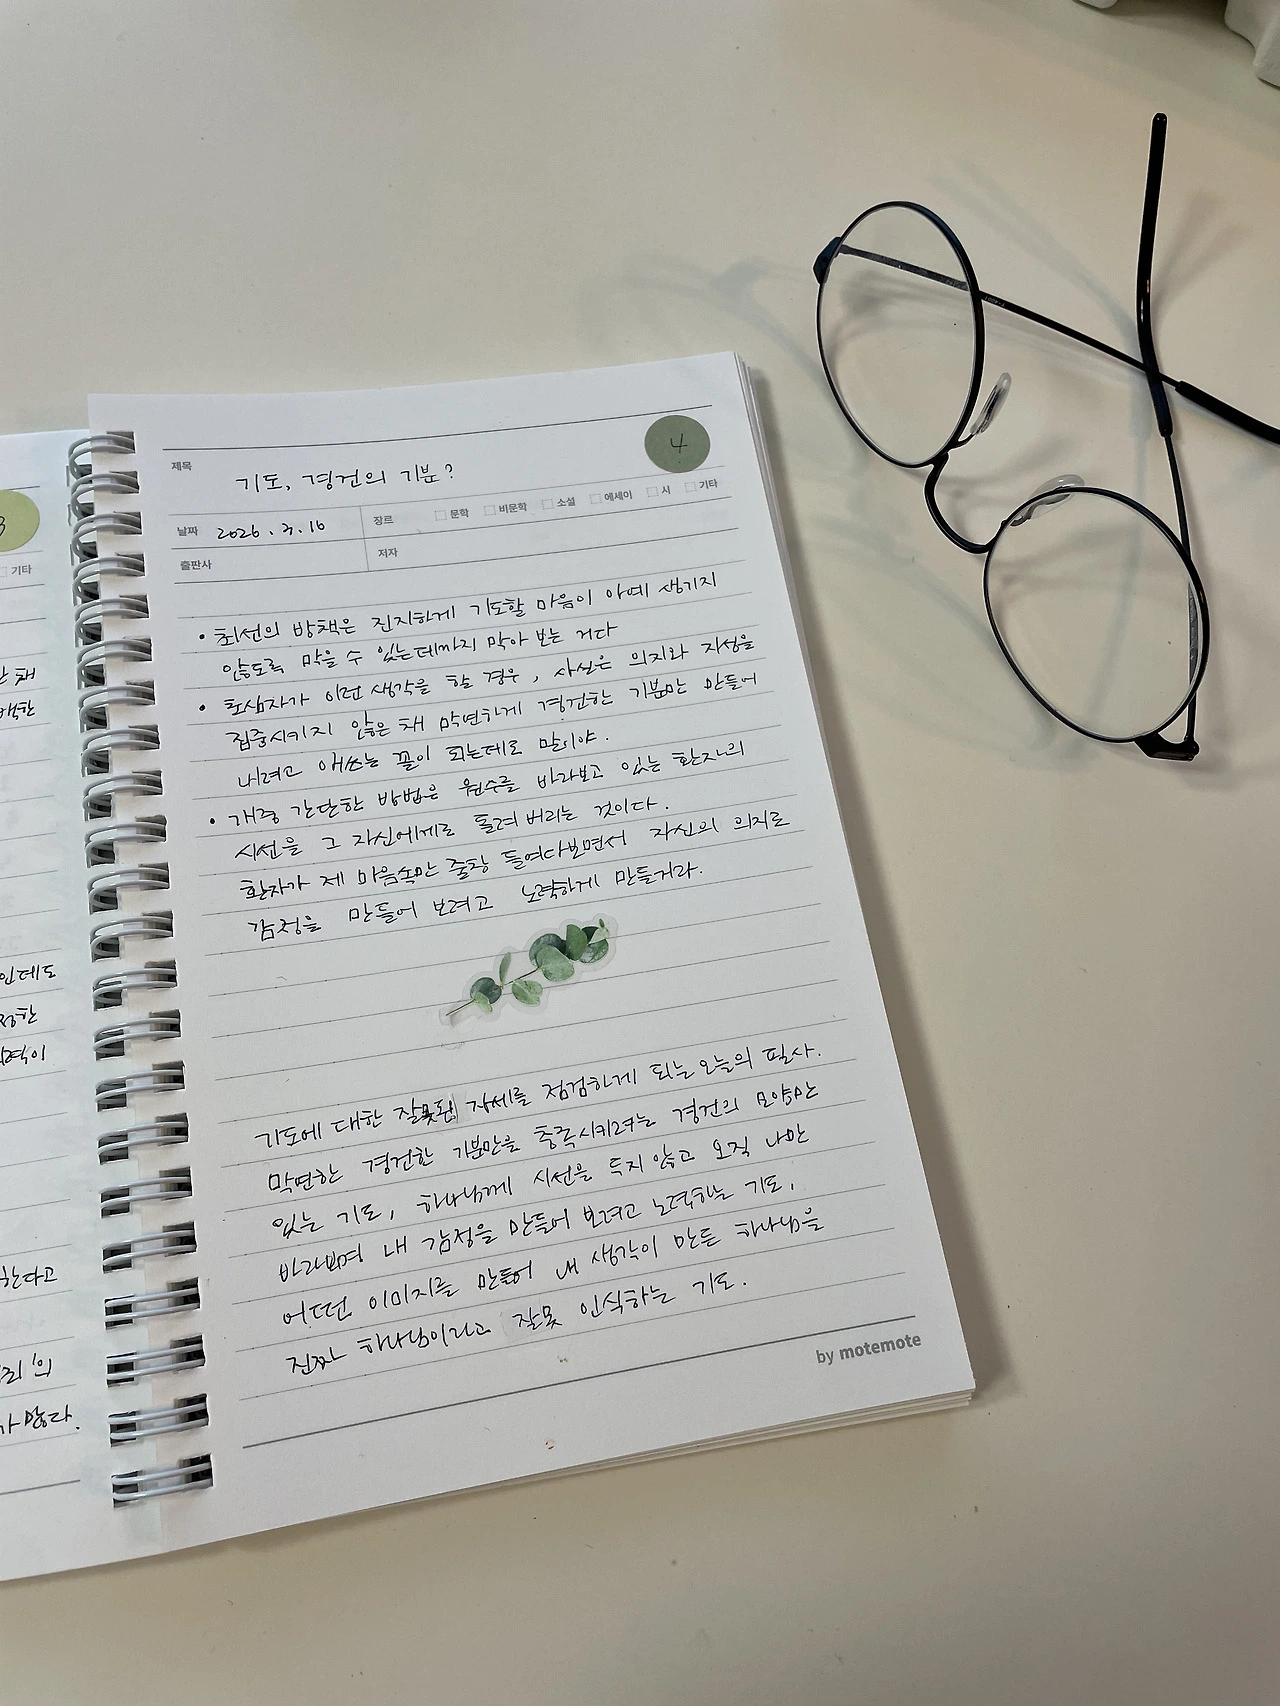 3
기타
인데도
정한
한다고
리'의
가 많다.
4
제목
기도, 경건의 기분?
날짜 2026. 3. 16 장르 문학 비문학 소설 에세이 시 기타
출판사 저자
• 최선의 방책은 진지하게 기도할 마음이 아예 생기지
않도록 막을 수 있는데까지 막아 보는 거다
• 초심자가 이런 생각을 할 경우, 사실은 의지와 지성을
집중시키지 않은 채 막연하게 경건한 기분만 만들어
내려고 애쓰는 꼴이 되는데로 말이야.
• 개중 간단한 방법은 원수를 바라보고 있는 환자의
시선을 그 자신에게로 돌려 버리는 것이다.
환자가 제 마음속만 줄창 들여다보면서 자신의 의지로
감정을 만들어 보려고 노력하게 만들거라.
기도에 대한 잘못된 자세를 점검하게 되는 오늘의 필사.
막연한 경건한 기분만을 충족시키려는 경건의 모양만
있는 기도, 하나님께 시선을 두지 않고 오직 나만
바라보며 내 감정을 만들어 보려고 노력하는 기도,
어떤 이미지를 만들어 내 생각이 만든 하나님을
진짜 하나님이라고 잘못 인식하는 기도.
by motemote